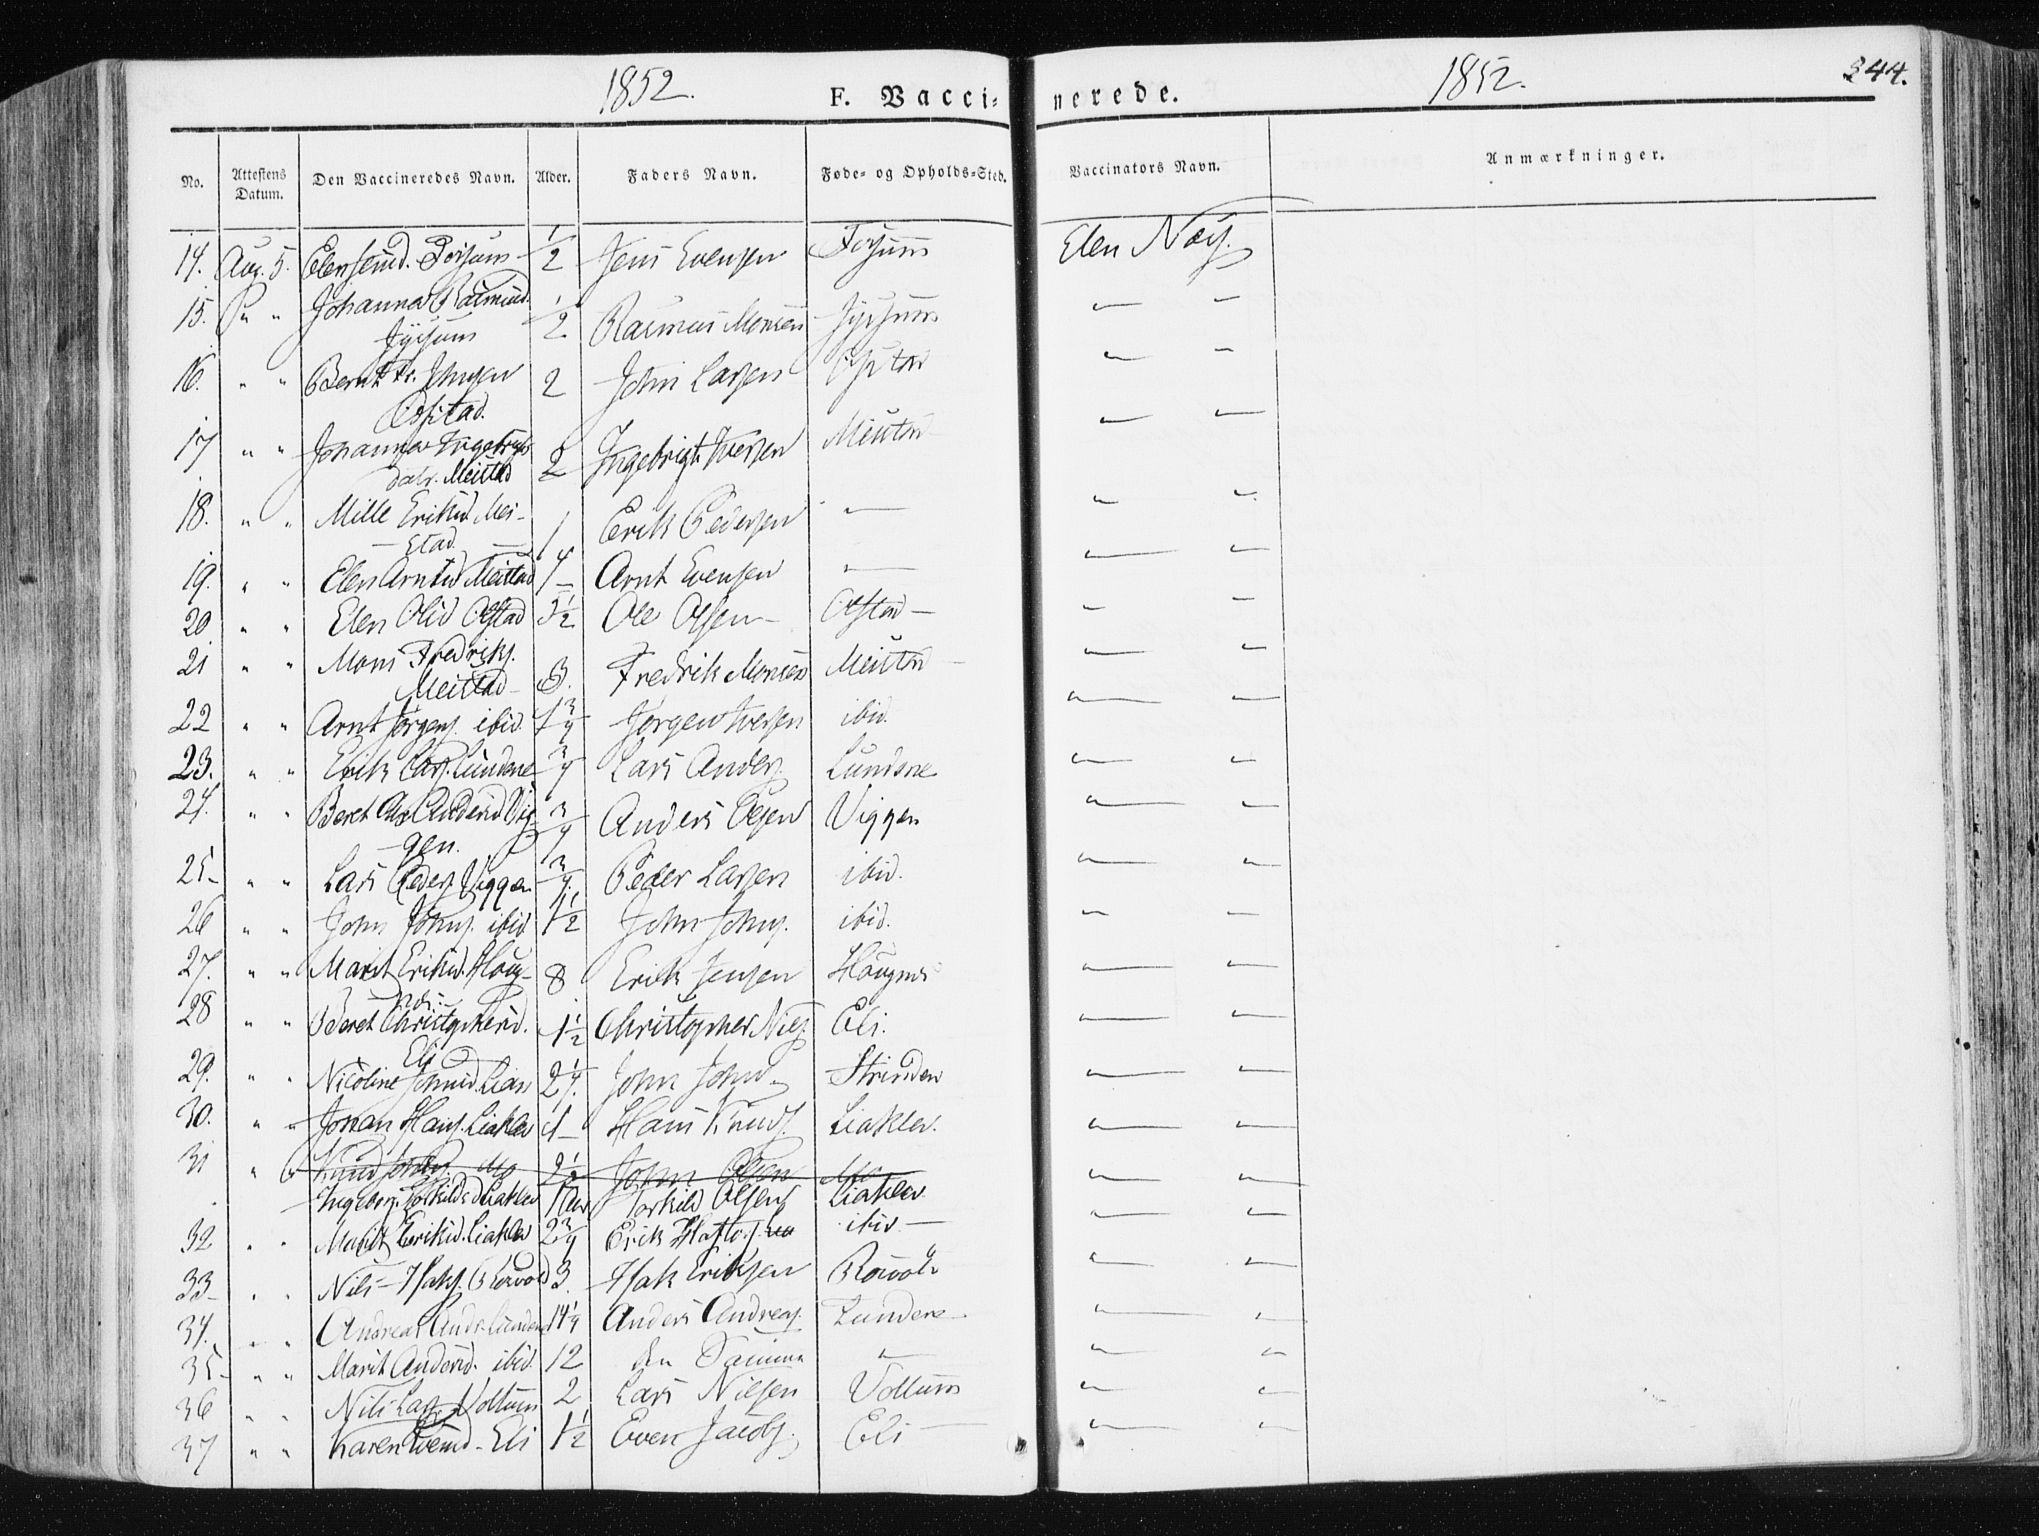 1852. F. Vacci- nerede. 1852. 344.
No. Attestens Datum. Den Vaccineredes Navn. Alder. Faders Navn. Føde- og Opholds-Sted. Vaccinators Navn. Anmærkninger.
14. Aug. 5. 1/2 Jens Evensen Elen
15. " Johanna Rasmusd. 1/2 Rasmus Monsen
16. " " Bernt Johnsen 2 John Larsen
17 " " Johanna Ingebrigts datr. Meistad 2 Ingebrigt Iversen Meistad
18. " " Mille Eriksd. Mei- 1 Erik Pedersen "
stad.
19. " " Elen Arntsd. Meistad Arnt Evensen "
20 " " Elen Olsd Olstad Ole Olsen Olstad
21 " " Mons Fredriks. 3. Fredrik Monsen Meistad
Meistad
22 " " Arnt Jørgens. ibid. Jørgen Iversen ibid.
23. " " Erik Lars. Lundene 3/4 Lars Anders. Lundene
24. " " Beret Andersd Vig- 3/4 Anders Olsen Viggen
gen.
25 " " Lars Peders. Viggen 3/4. Peder Larsen ibid.
26 " " John Johns. ibid 1 1/2 John Johns. ibid.
27. " " Marit Eriksd. Haug- 8 Erik Jensen Haugnes
nes.
28 " " Beret Christophersd. 1 1/2 Christopher Niels. Eli.
Eli
29. " " Nicoline Johnsd. Lian 2 1/4. John Johns. Strinden
30. " " Johan Hans. Liaklev Hans Knuds. Liaklev.
31 " " Knud Johns. Mo 2 1/2 John Olsen Mo
Ingeborg Torkildsd Liaklev Torkild Olsen Liaklev
32 " " Marit Eriksd. Liaklev 2 3/4 Erik ibid.
33 " " Nils Isaks. 3. Isak Eriksen
34. " " Andreas Anders. Lundene Anders Andreas. Lundene
35 " " Marit Andersd. ibid. 12 den Samme "
36 " " Nils Lars. Vollum 2 Lars Nilsen Vollum
37 " " Karen Evensd. Eli 1 1/2 Even Jacobs. Eli